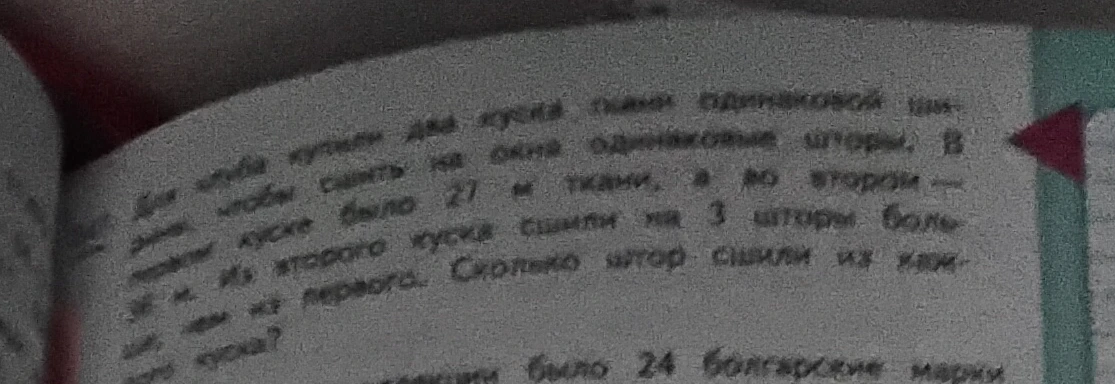 Для клуба купили два куска ткани одинаковой ши-
рины, чтобы сшить на окна одинаковые шторы. В
первом куске было 27 м ткани, а во втором —
м. Из второго куска сшили на 3 шторы боль-
ше, чем из первого. Сколько штор сшили из каж-
дого куска?
было 24 болгарские марки